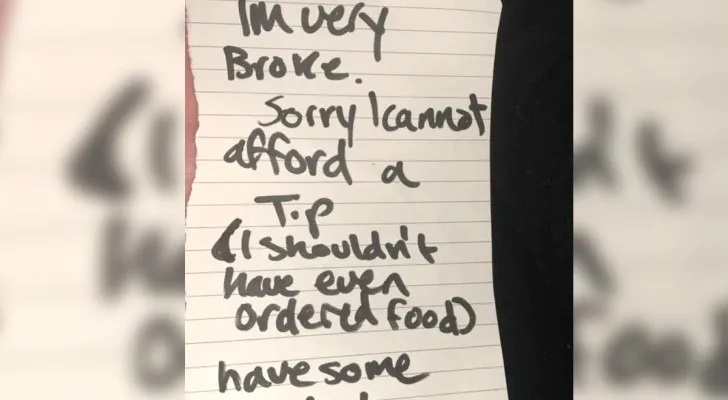 Im very
Broke.
Sorry I cannot
afford a
Tip
(I shouldn't
have even
ordered food)
have some